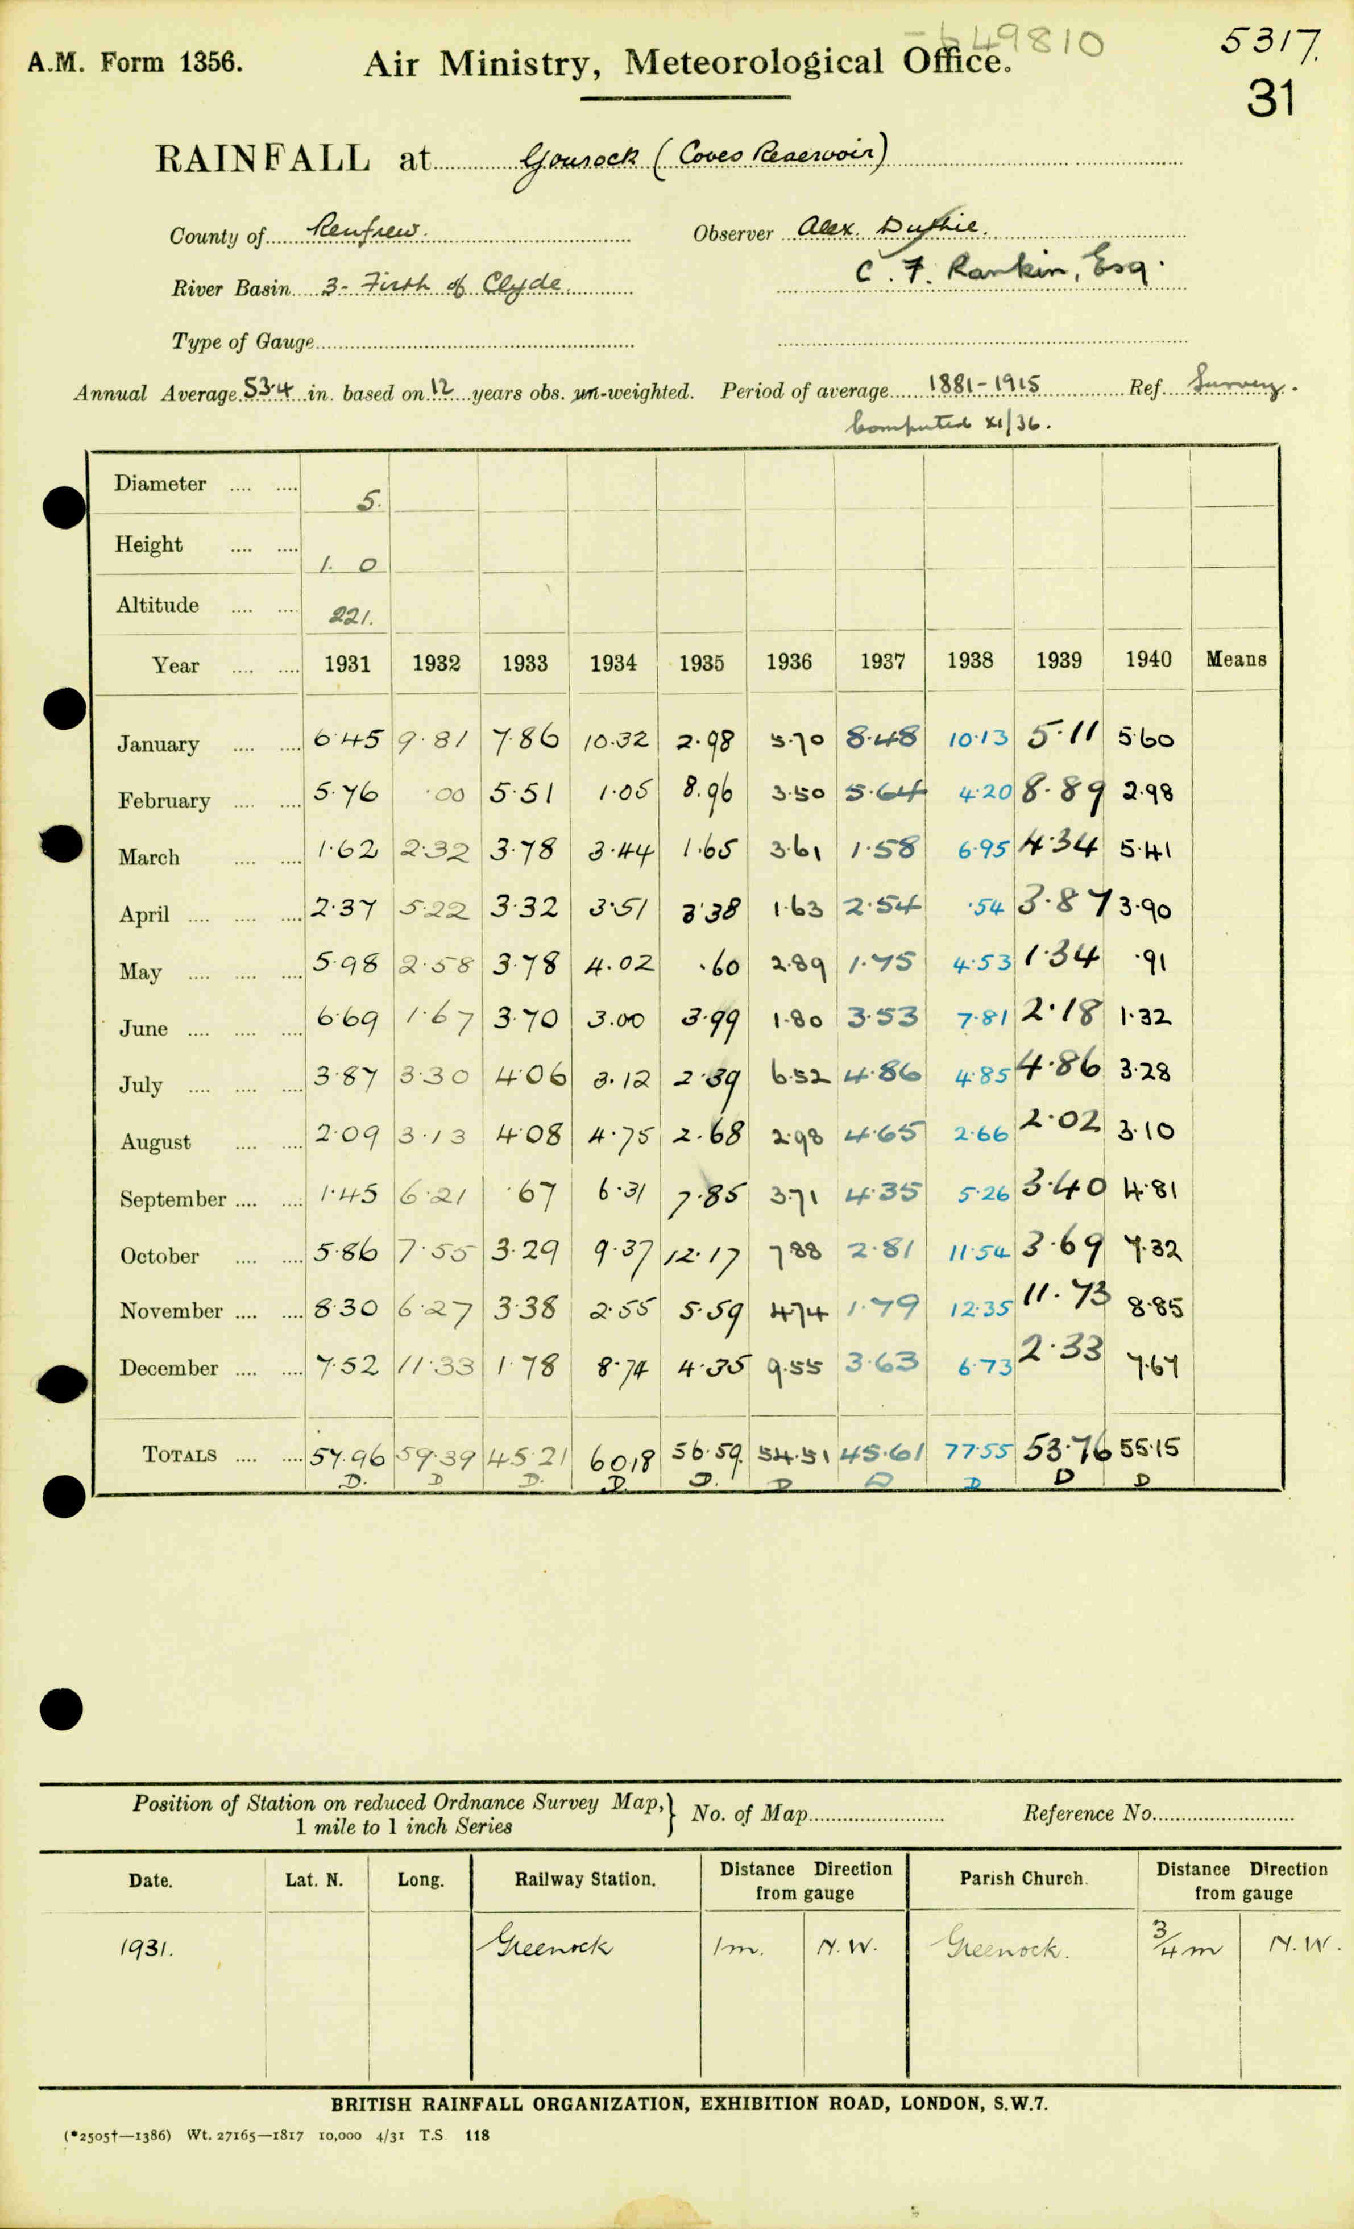 649810
5317.
A.M. Form 1356.
Air Ministry, Meteorological Office.
31
RAINFALL at Gourock (Coves Reservoir)
County of Renfrew. Observer Alex. Duthie.
C. F. Rankin, Esq.
River Basin 3- Firth of Clyde
Type of Gauge
Annual Average 53.4 in. based on 12 years obs. un-weighted. Period of average 1881-1915 Ref. Survey.
Computed XI/36.
Diameter .... .... 5.
Height .... .... 1. 0
Altitude .... .... 221.
Year .... .... 1931 1932 1933 1934 1935 1936 1937 1938 1939 1940 Means
January .... .... 6.45 9.81 7.86 10.32 2.98 5.70 8.48 10.13 5.11 5.60
February .... .... 5.76 .00 5.51 1.05 8.96 3.50 5.64 4.20 8.89 2.98
March .... .... 1.62 2.32 3.78 3.44 1.65 3.61 1.58 6.95 4.34 5.41
April .... .... .... 2.37 5.22 3.32 3.51 3.38 1.63 2.54 .54 3.87 3.90
May .... .... .... 5.98 2.58 3.78 4.02 .60 2.89 1.75 4.53 1.34 .91
June .... .... .... 6.69 1.67 3.70 3.00 3.99 1.80 3.53 7.81 2.18 1.32
July .... .... .... 3.87 3.30 4.06 3.12 2.39 6.52 4.86 4.85 4.86 3.28
August .... .... 2.09 3.13 4.08 4.75 2.68 2.98 4.65 2.66 2.02 3.10
September .... .... 1.45 6.21 .67 6.31 7.85 3.71 4.35 5.26 3.40 4.81
October .... .... 5.86 7.55 3.29 9.37 12.17 7.88 2.81 11.54 3.69 7.32
November .... .... 8.30 6.27 3.38 2.55 5.59 4.74 1.79 12.35 11.73 8.85
December .... .... 7.52 11.33 1.78 8.74 4.35 9.55 3.63 6.73 2.33 7.67
TOTALS .... .... 57.96 59.39 45.21 60.18 56.59. 54.51 45.61 77.55 53.76 55.15
D. D D. D D. D D D D D
Position of Station on reduced Ordnance Survey Map,} No. of Map Reference No.
1 mile to 1 inch Series
Date. Lat. N. Long. Railway Station. Distance Direction from gauge Parish Church. Distance Direction from gauge
1931. Greenock 1m. N.W. Greenock. 3/4 m N.W.
BRITISH RAINFALL ORGANIZATION, EXHIBITION ROAD, LONDON, S.W.7.
(*2505†—1386) Wt. 27165—1817 10,000 4/31 T.S 118